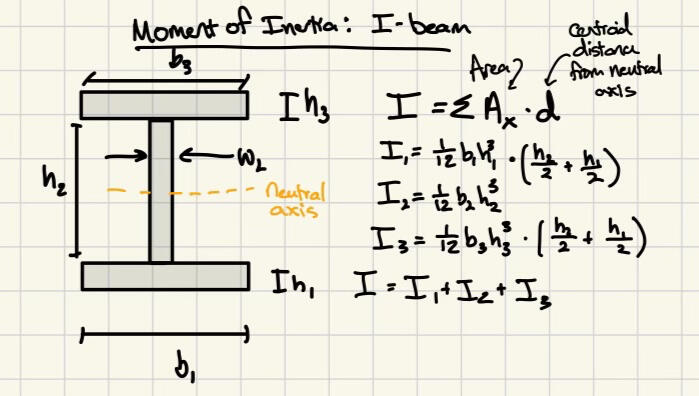 Moment of Inertia: I-beam
b₃
h₃
h₂
w₂
Neutral
axis
h₁
b₁
Area
centroid
distance
from neutral
axis
I = Σ Aₓ · d
I₁ = 1/12 b₁h₁³ · (h₂/2 + h₁/2)
I₂ = 1/12 b₂h₂³
I₃ = 1/12 b₃h₃³ · (h₂/2 + h₁/2)
I = I₁ + I₂ + I₃